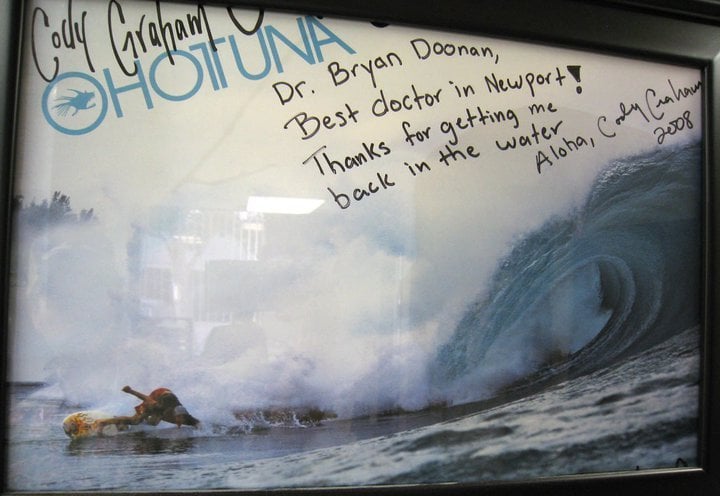 Cody Graham
HOTTUNA
Dr. Bryan Doonan,
Best doctor in Newport!
Thanks for getting me
back in the water
Aloha, Cody Graham
2008